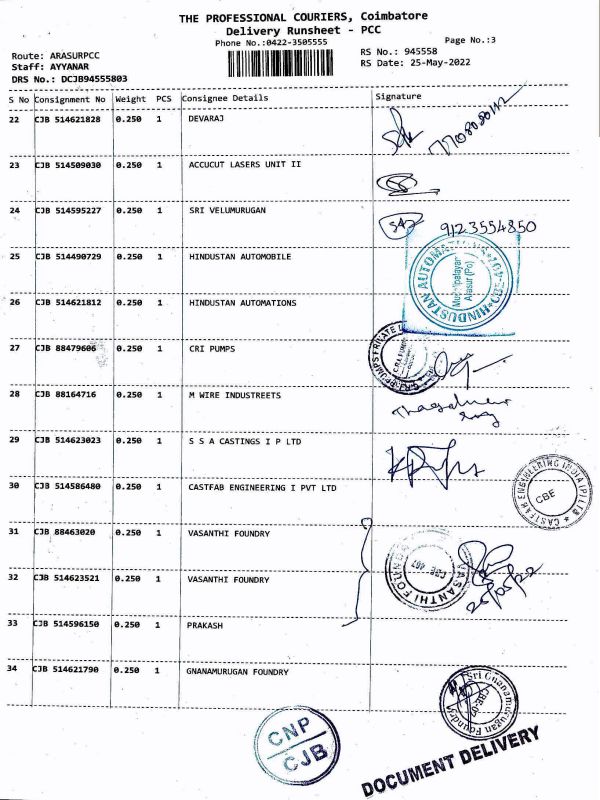 THE PROFESSIONAL COURIERS, Coimbatore
Delivery Runsheet - PCC
Phone No.:0422-3505555
Page No.:3
Route: ARASURPCC
RS No.: 945558
Staff: AYYANAR
RS Date: 25-May-2022
DRS No.: DCJB94555803
S No Consignment No Weight PCS Consignee Details Signature
22 CJB 514621828 0.250 1 DEVARAJ
23 CJB 514509030 0.250 1 ACCUCUT LASERS UNIT II
24 CJB 514595227 0.250 1 SRI VELUMURUGAN
9123554850
25 CJB 514490729 0.250 1 HINDUSTAN AUTOMOBILE
26 CJB 514621812 0.250 1 HINDUSTAN AUTOMATIONS
27 CJB 88479606 0.250 1 CRI PUMPS
28 CJB 88164716 0.250 1 M WIRE INDUSTREETS
29 CJB 514623023 0.250 1 S S A CASTINGS I P LTD
30 CJB 514586480 0.250 1 CASTFAB ENGINEERING I PVT LTD
CASTFAB ENGINEERING INDIA (P) LTD
CBE
31 CJB 88463020 0.250 1 VASANTHI FOUNDRY
32 CJB 514623521 0.250 1 VASANTHI FOUNDRY
VASANTHI FOUND
CBE 407
25/05/22
33 CJB 514596150 0.250 1 PRAKASH
34 CJB 514621790 0.250 1 GNANAMURUGAN FOUNDRY
Sri Gnanamurugan Foundry
CNP
CJB
DOCUMENT DELIVERY